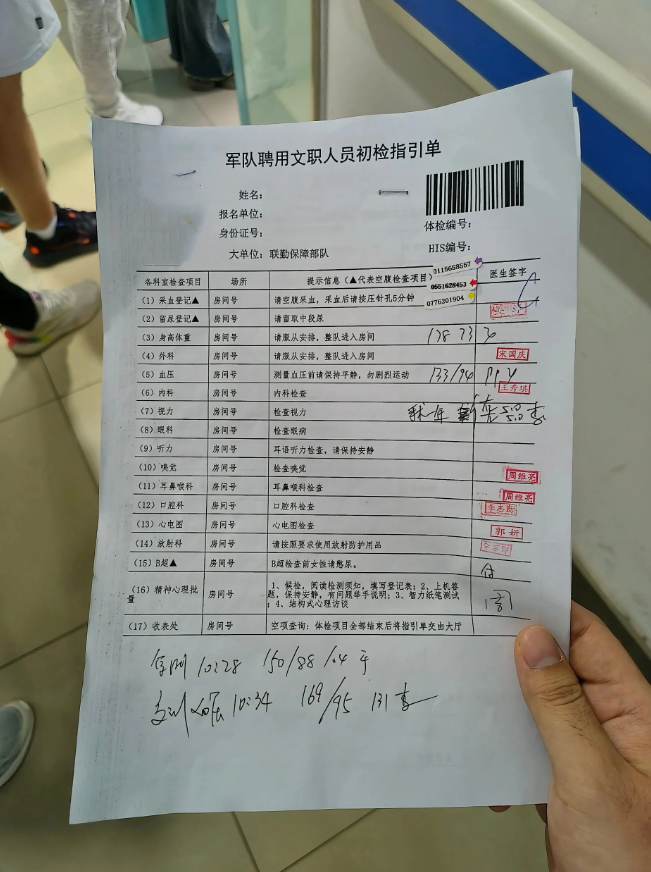 军队聘用文职人员初检指引单
姓名：
报名单位：
身份证号：
体检编号：
大单位：联勤保障部队
HIS编号：
0115668567
0551628453
0776201904
各科室检查项目 场所 提示信息（▲代表空腹检查项目） 医生签字
（1）采血登记▲ 房间号 请空腹采血，采血后请按压针孔5分钟
（2）留尿登记▲ 房间号 请留取中段尿
（3）身高体重 房间号 请服从安排，整队进入房间 178 73
（4）外科 房间号 请服从安排，整队进入房间 宋国庆
（5）血压 房间号 测量血压前请保持平静，勿剧烈运动 133/94
（6）内科 房间号 内科检查 王秀琪
（7）视力 房间号 检查视力 5.0 5.0
（8）眼科 房间号 检查眼病
（9）听力 房间号 耳语听力检查，请保持安静
（10）嗅觉 房间号 检查嗅觉 周维亮
（11）耳鼻喉科 房间号 耳鼻喉科检查 周维亮
（12）口腔科 房间号 口腔科检查
（13）心电图 房间号 心电图检查 郭妍
（14）放射科 房间号 请按照要求使用放射防护用品
（15）B超▲ 房间号 B超检查前女性请憋尿。
（16）精神心理批量 房间号 1、候检，阅读检测须知，填写登记表；2、上机答题，保持安静，有问题举手说明；3、智力纸笔测试；4、结构式心理访谈
（17）收表处 房间号 空项查询：体检项目全部结束后将指引单交由大厅
10:28 150/88
10:34 169/95 131